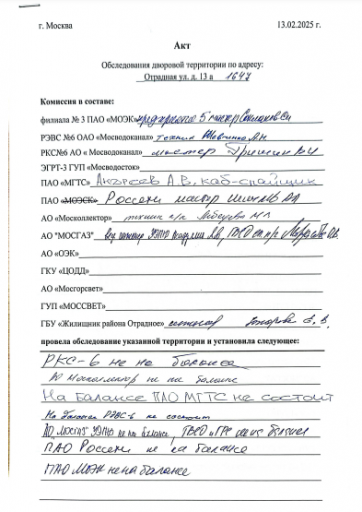 г. Москва 13.02.2025 г.
Акт
Обследования дворовой территории по адресу:
Отрадная ул. д. 13 а 1647
Комиссия в составе:
филиала № 3 ПАО «МОЭК» предприятие 5 мастер
РЭВС №6 ОАО «Мосводоканал» техник Шевченко А.Н
РКС№6 АО « Мосводоканал» мастер Гришин В.И
ЭГРТ-3 ГУП «Мосводосток»
ПАО «МГТС» Андреев А.В. каб-спайщик
ПАО «МОЭСК» Россети мастер
АО «Москоллектор» техник
АО "МОСГАЗ"
АО «ОЭК»
ГКУ «ЦОДД»
АО «Мосгорсвет»
ГУП «МОССВЕТ»
ГБУ «Жилищник района Отрадное» Е.В.
провела обследование указанной территории и установила следующее:
РКС-6 не на балансе
АО Москоллектор не на балансе
На балансе ПАО МГТС не состоит
На балансе РЭВС-6 не состоит
АО МОСГАЗ не на балансе,
ПАО Россети не на балансе
ПАО МОЭК не на балансе